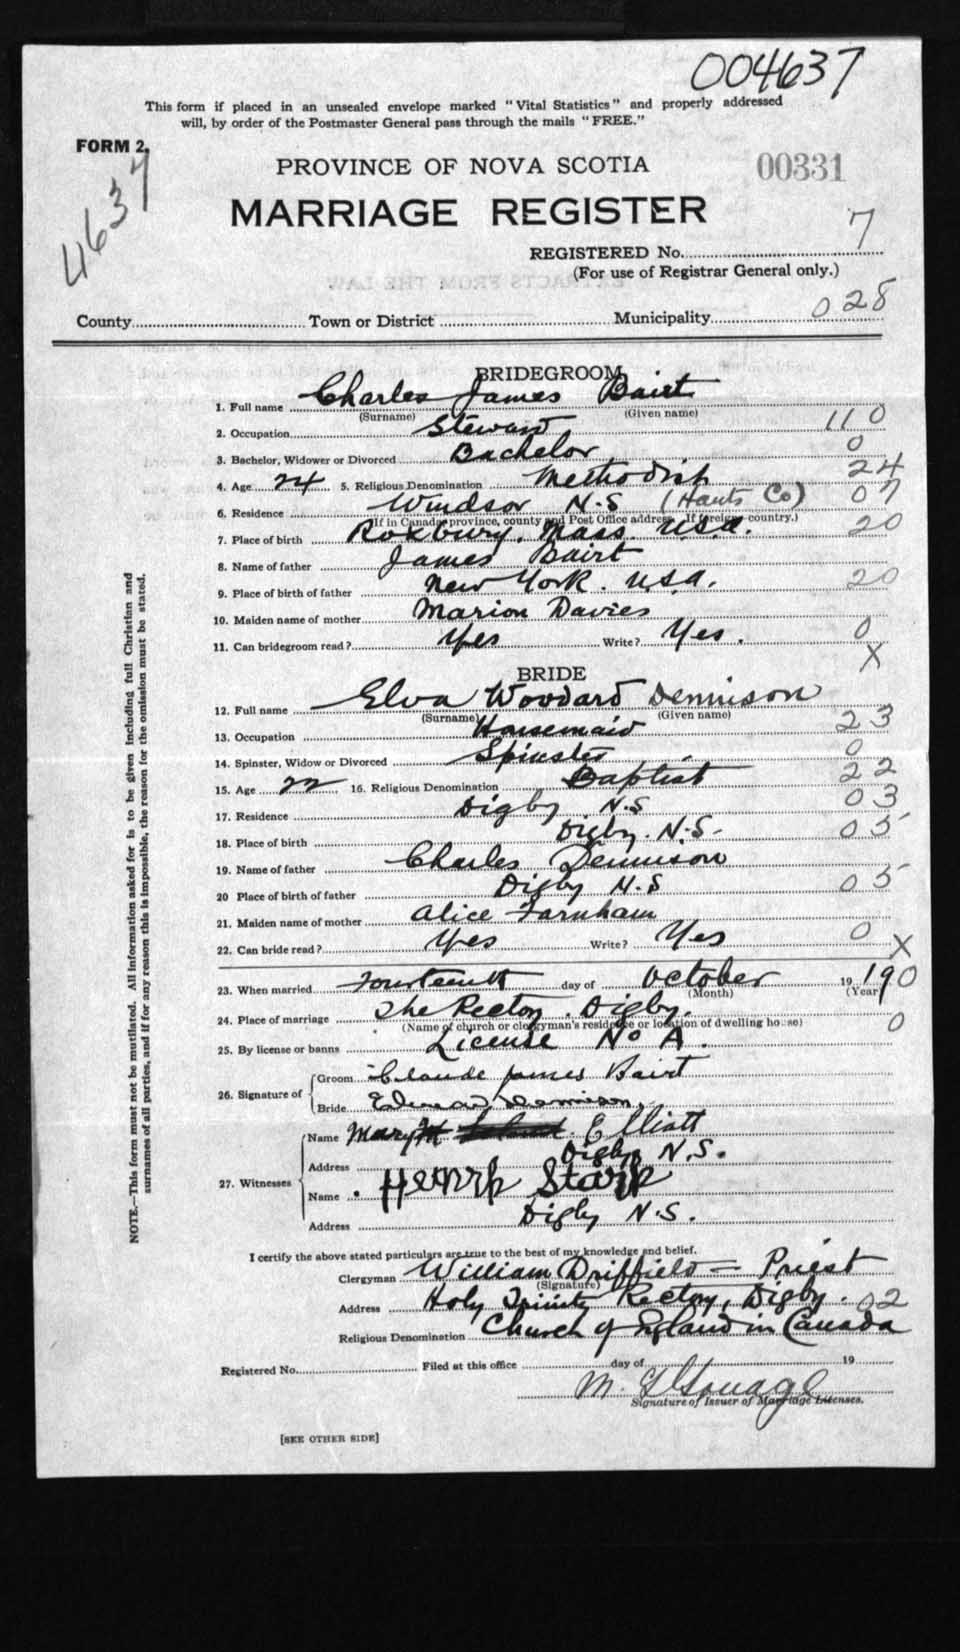 004637
This form if placed in an unsealed envelope marked "Vital Statistics" and properly addressed
will, by order of the Postmaster General pass through the mails "FREE."
FORM 2.
4637
PROVINCE OF NOVA SCOTIA
00331
MARRIAGE REGISTER
REGISTERED No. 7
(For use of Registrar General only.)
County Town or District Municipality 028
BRIDEGROOM
1. Full name Charles James Bairt
(Surname) (Given name)
2. Occupation Steward 110
3. Bachelor, Widower or Divorced Bachelor 0
4. Age 24 5. Religious Denomination Methodist 24
6. Residence Windsor N.S (Hants Co) 07
(If in Canada, province, county and Post Office address. If foreign country.)
7. Place of birth Roxbury, Mass. U.S.A. 20
8. Name of father James Bairt
9. Place of birth of father New York. U.S.A. 20
10. Maiden name of mother Marion Davies
11. Can bridegroom read? Yes Write? Yes. 0
X
BRIDE
12. Full name Elva Woodard Dennison
(Surname) (Given name)
13. Occupation Housemaid 23
14. Spinster, Widow or Divorced Spinster 0
15. Age 22 16. Religious Denomination Baptist 22
17. Residence Digby N.S 03
18. Place of birth Digby. N.S- 05
19. Name of father Charles Dennison
20 Place of birth of father Digby N.S 05
21. Maiden name of mother Alice Farnham
22. Can bride read? Yes Write? Yes 0 X
23. When married Fourteenth day of October 19 190
(Month) (Year)
24. Place of marriage The Rectory. Digby.
(Name of church or clergyman's residence or location of dwelling house) 0
25. By license or banns License No A.
26. Signature of Groom Claude James Bairt
Bride Dennison
27. Witnesses Name Mary M Elliott
Address Digby N.S.
Name Henry Stark
Address Digby N.S.
I certify the above stated particulars are true to the best of my knowledge and belief.
Clergyman William Driffield - Priest
(Signature)
Address Holy Trinity Rectory, Digby. 02
Religious Denomination Church of England in Canada
Registered No. Filed at this office day of 19
M.
Signature of Issuer of Marriage Licenses.
[SEE OTHER SIDE]
NOTE.—This form must not be mutilated. All information asked for is to be given including full Christian and
surnames of all parties, and if for any reason this is impossible, the reason for the omission must be stated.